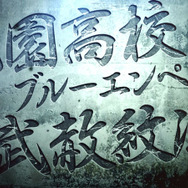 園高校
ブルーエンペ
武赦紋